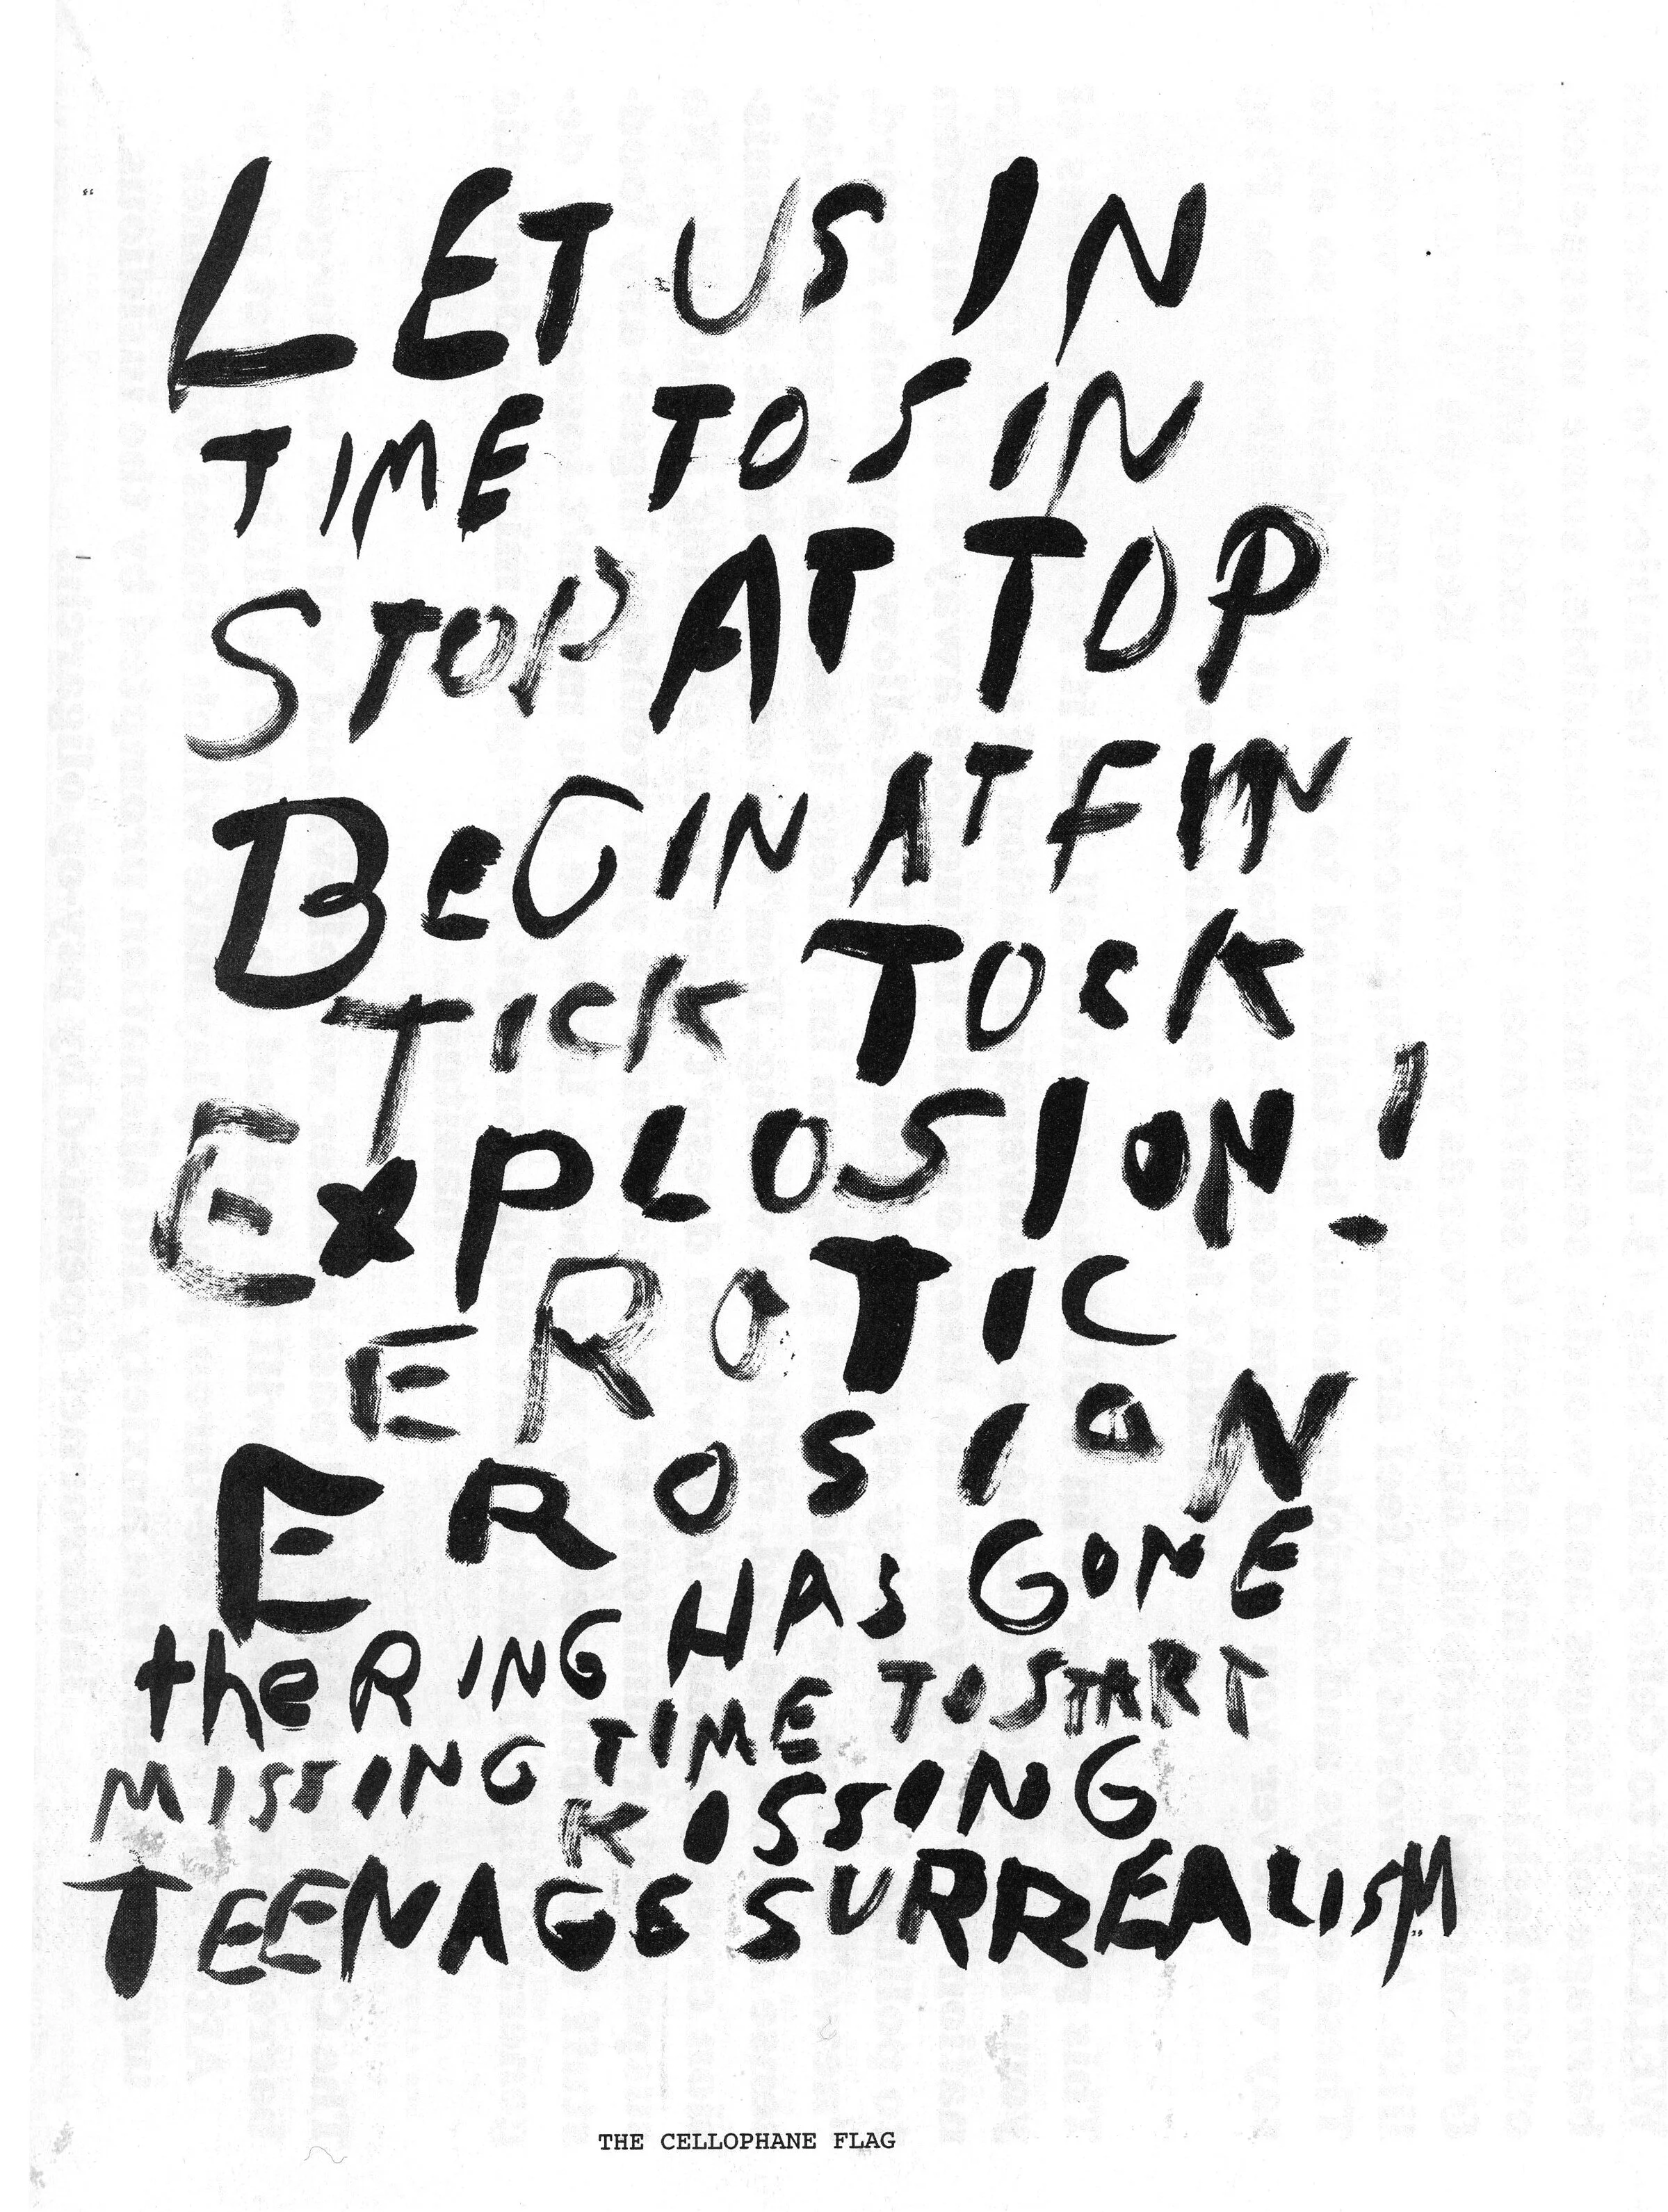 LET US IN
TIME TO SIN
STOP AT TOP
BeGIN AT FIN
TICK TOCK
ExPLOSION!
EROTIC
EROSION
the RING HAS GONE
MISSING TIME TO START
KISSING
TEENAGE SURREALISM
THE CELLOPHANE FLAG